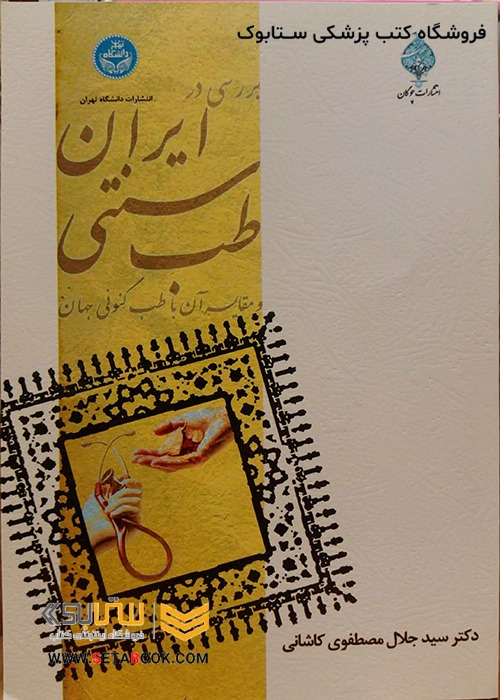 فروشگاه کتب پزشکی ستابوک
دانشگاه
انتشارات دانشگاه تهران
انتشارات چوگان
بررسی در
طب سنتی
ایران
و مقایسه آن با طب کنونی جهان
دکتر سید جلال مصطفوی کاشانی
ستابوک
فروشگاه اینترنتی کتاب
WWW.SETABOOK.COM